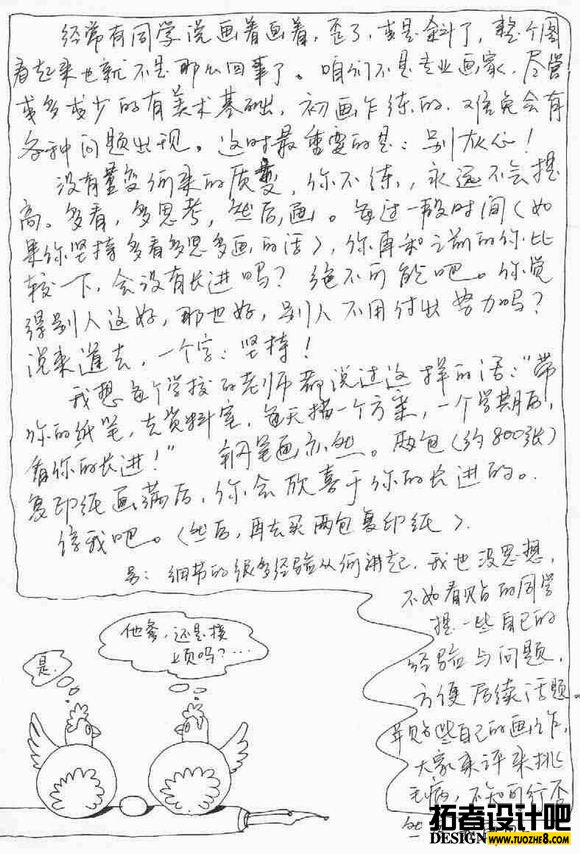 经常有同学说画着画着,歪了,或是斜了,整个图
看起来也就不是那么回事了。咱们不是专业画家,尽管
或多或少的有美术基础,初画乍练的,难免会有
各种问题出现。这时最重要的是:别灰心!
没有量变何来的质变,你不练,永远不会提
高。多看,多思考,然后,画。每过一段时间(如
果你坚持多看多思多画的话),你再和之前的你比
较一下,会没有长进吗?绝不可能吧。你觉
得别人这好,那也好,别人不用付出努力吗?
说来道去,一个字:坚持!
我想每个学校的老师都说过这样的话:“带
你的纸笔,去资料室,每天描一个方案,一个学期后,
看你的长进!” 钢笔画亦然。两包(约800张)
复印纸画满后,你会欣喜于你的长进的。
信我吧。(然后,再去买两包复印纸)。
另:细节的很多经验从何讲起,我也没思想,
不如看贴的同学
提一些自己的
经验与问题,
方便后续话题。
并贴些自己的画作,
大家来评来挑
毛病,不知可行否
他爹,还是接
上页吗?…
是.
拓者设计吧
DESIGN WWW.TUOZHE8.COM